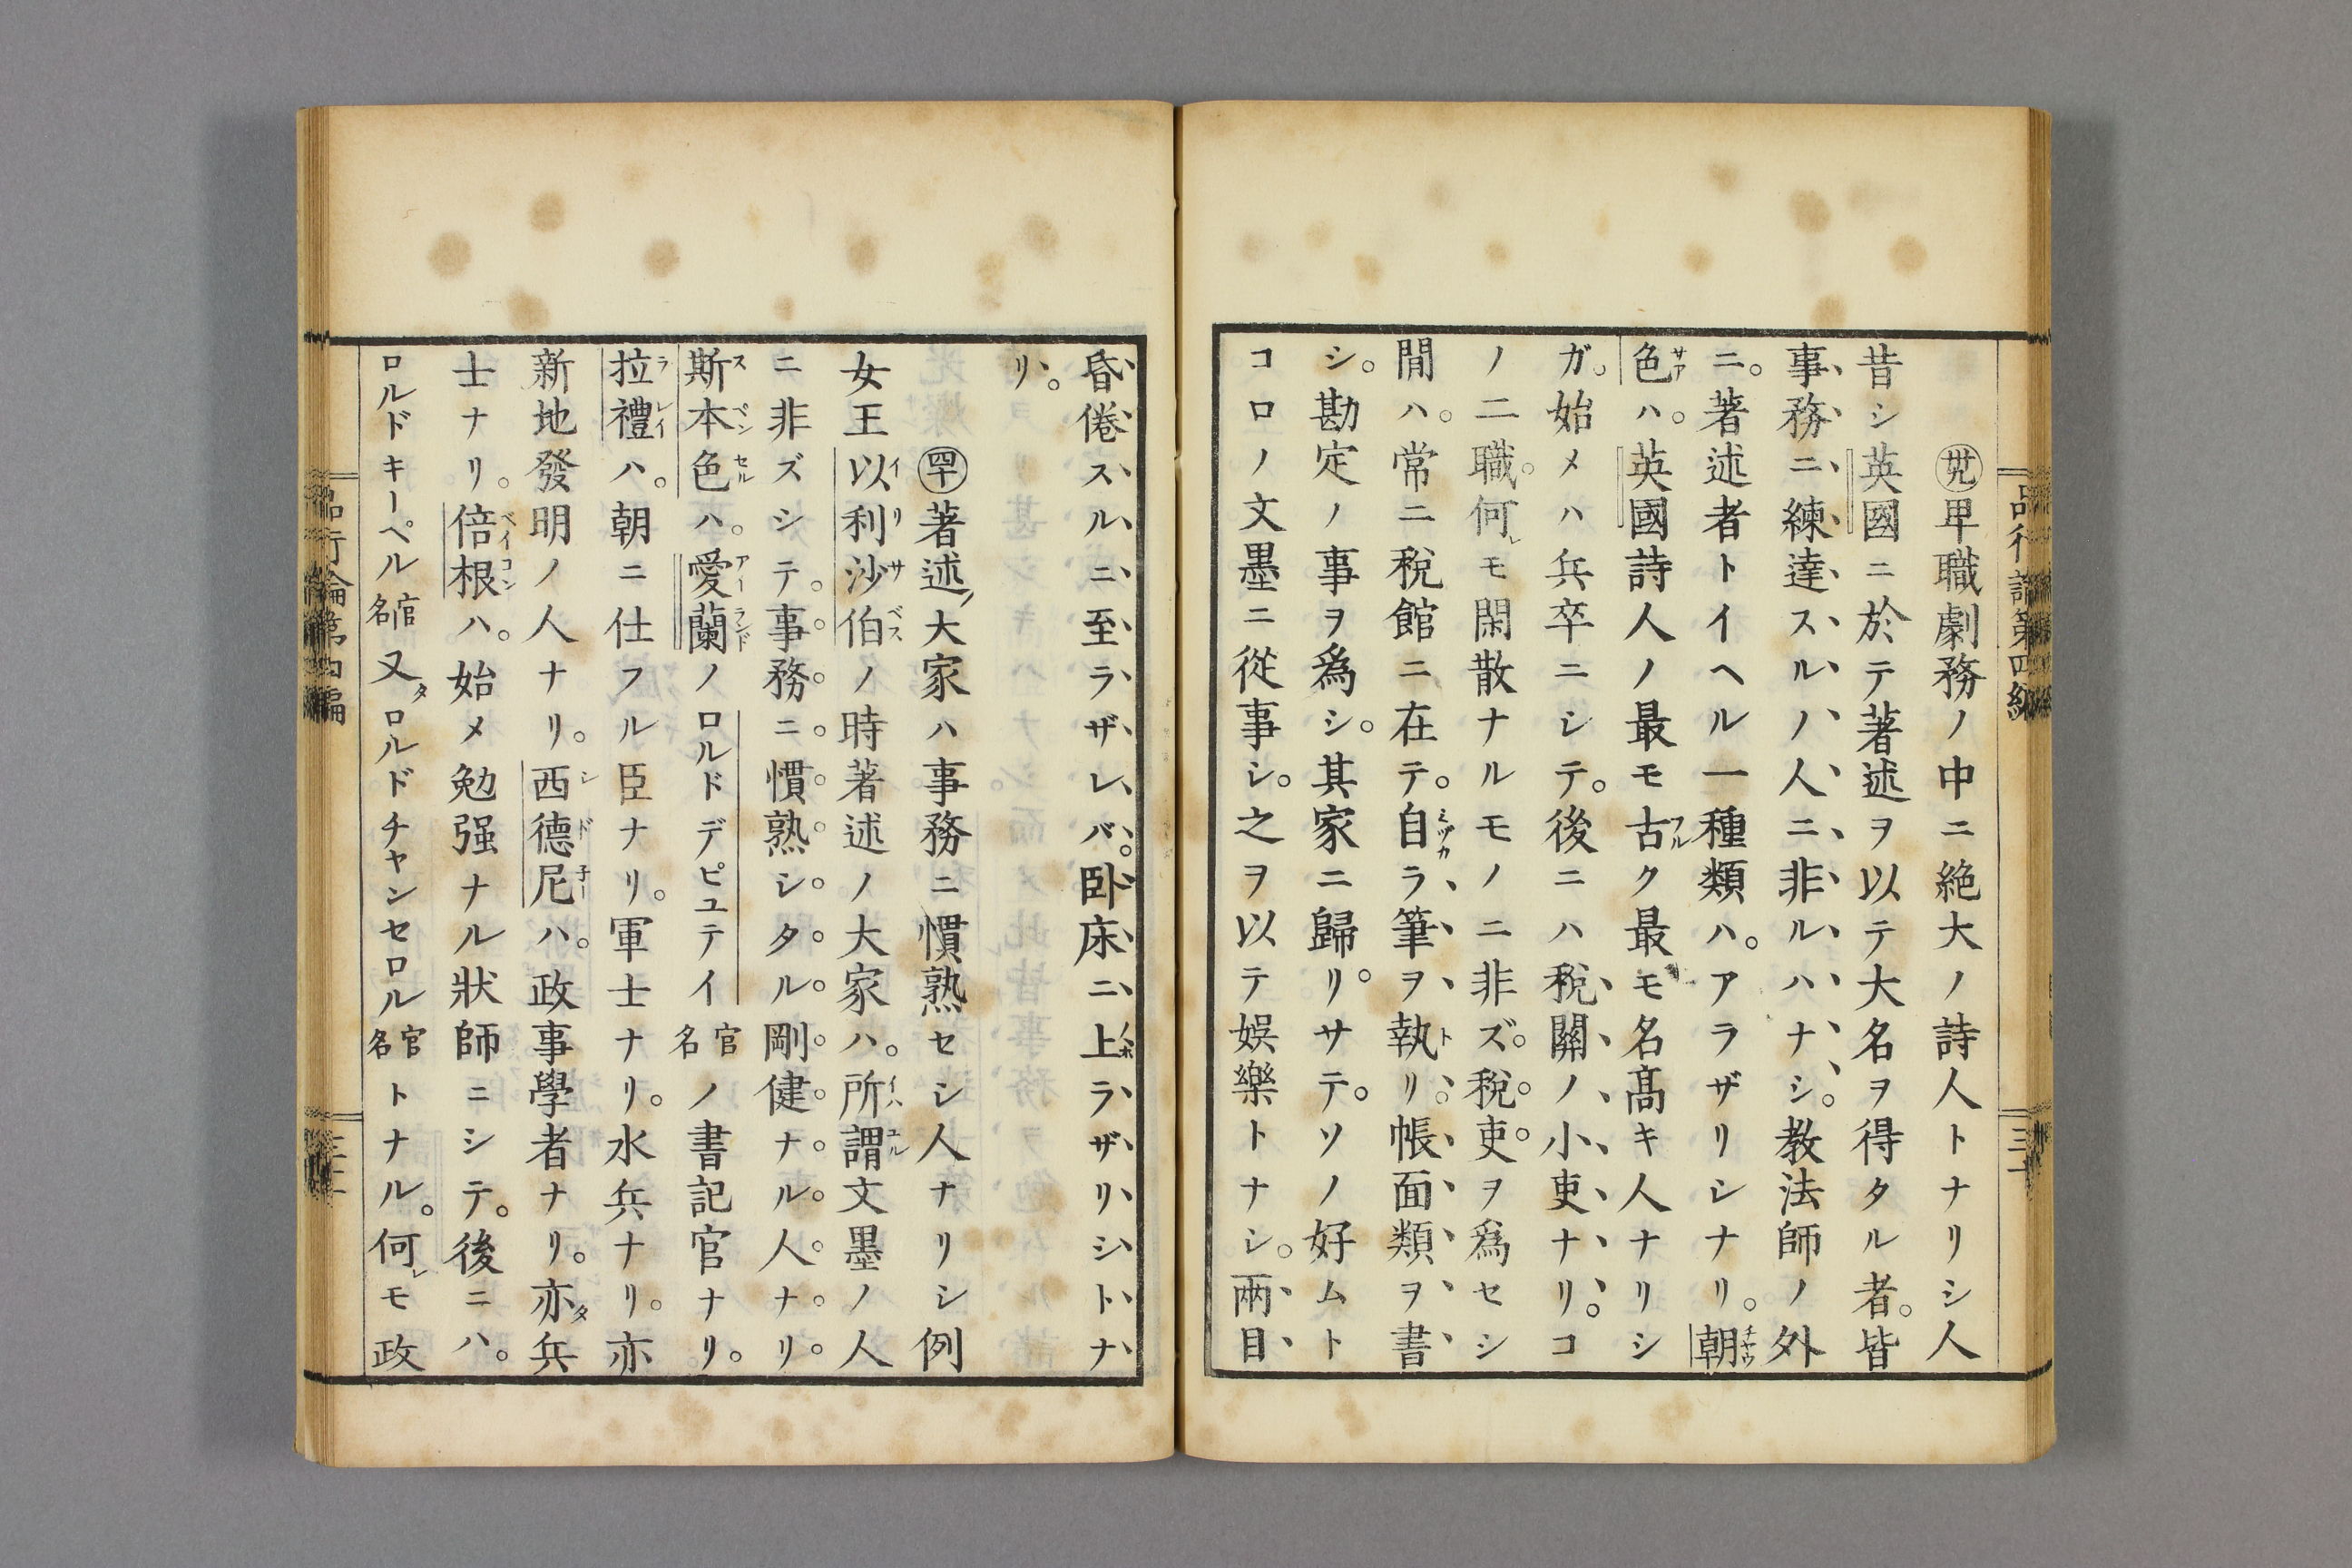 品行論第四編
三十
㊴卑職劇務ノ中ニ絶大ノ詩人トナリシ人
昔シ英國ニ於テ著述ヲ以テ大名ヲ得タル者。皆
事務ニ練達スルノ人ニ非ルハナシ。教法師ノ外
ニ。著述者トイヘル一種類ハ。アラザリシナリ。朝
色ハ。英國詩人ノ最モ古ク最モ名髙キ人ナリシ
ガ。始メハ兵卒ニシテ。後ニハ税關ノ小吏ナリ。コ
ノ二職。何レモ閑散ナルモノニ非ズ。税吏ヲ爲セシ
間ハ。常ニ税館ニ在テ。自ラ筆ヲ執リ。帳面類ヲ書
シ。勘定ノ事ヲ爲シ。其家ニ歸リ。サテ。ソノ好ムト
コロノ文墨ニ從事シ。之ヲ以テ娯樂トナシ。兩目
昏倦スルニ至ラザレバ。卧床ニ上ラザリシトナ
リ。
㊵著述ノ大家ハ事務ニ慣熟セシ人ナリシ例
女王以利沙伯ノ時著述ノ大家ハ。所謂文墨ノ人
ニ非ズシテ。事務ニ慣熟シタル剛健ナル人ナリ。
斯本色ハ。愛蘭ノロルドデピュテイ官名ノ書記官ナリ。
拉禮ハ。朝ニ仕フル臣ナリ。軍士ナリ。水兵ナリ。亦
新地發明ノ人ナリ。西德尼ハ。政事學者ナリ。亦タ兵
士ナリ。倍根ハ。始メ勉强ナル狀師ニシテ。後ニハ。
ロルドキーペル官名又タロルドチャンセロル官名トナル。何レモ政
品行論第四編